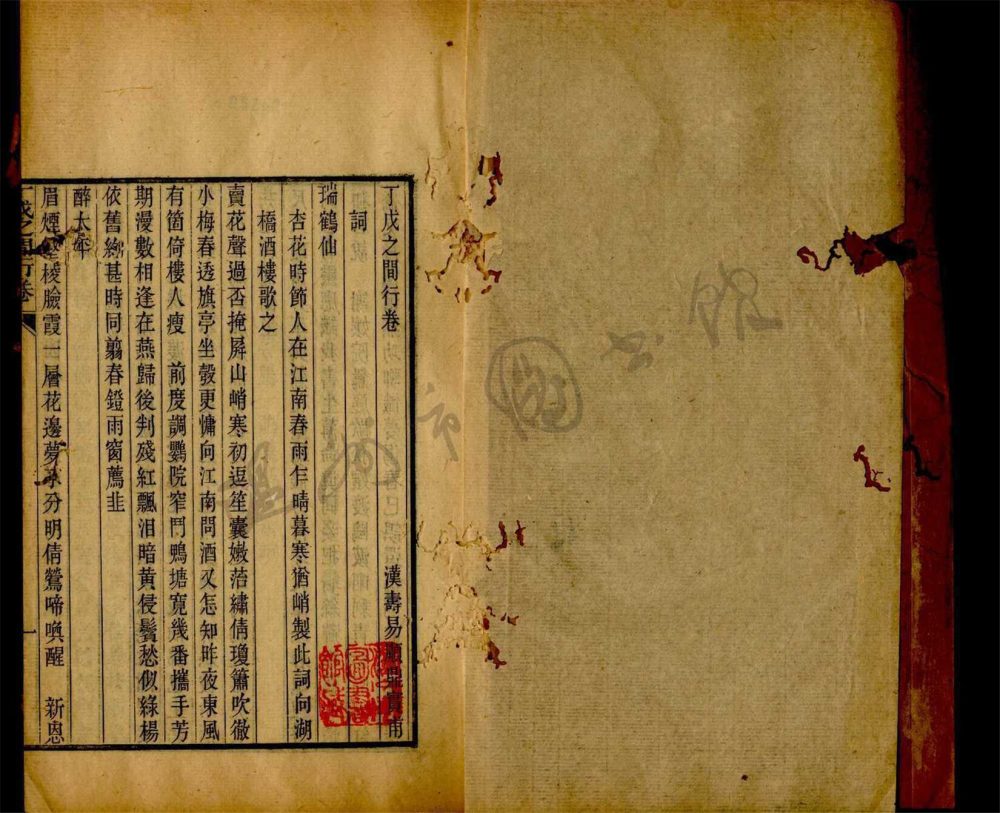 丁戊之間行卷
漢壽易順鼎實甫
詞
瑞鶴仙
杏花時節人在江南春雨乍晴暮寒猶峭製此詞向湖
橋酒樓歌之
賣花聲過否掩屏山峭寒初逗笙囊嫩萡繡倩瓊簫吹徹
小梅春透旗亭坐彀更慵向江南問酒又怎知昨夜東風
有箇倚樓人瘦 前度調鸚院窄鬥鴨塘寬幾番攜手芳
期漫數相逢在燕歸後判殘紅飄泪暗黄侵鬢愁似綠楊
依舊約甚時同翦春鐙雨窗薦韭
醉太平
眉煙 梭臉霞一層花邊夢 分明倩鶯啼喚醒 新恩
丁戊之間行卷
一
市圖書館